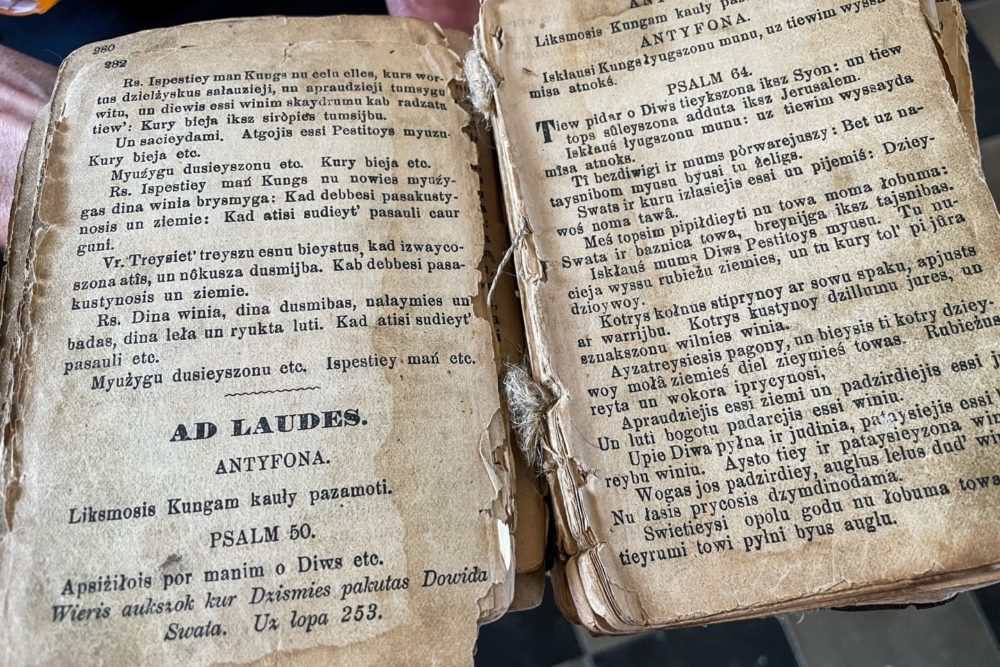 280
282
Rs. Ispestiey man Kungs nu celu elles, kurs wor-
tus dzielżyskus sałauzieji, un apraudzieji tumsygu
witu, un diewis essi winim skaydrumu kab radzata
tiew': Kury bieja iksz siròpies tumsijbu.
Un sacieydami. Atgojis essi Pestitoys myuzu.
Kury bieja etc.
Myuźygu dusieyszonu etc. Kury bieja etc.
Rs. Ispestiey mań Kungs nu nowies myuźy-
gas dina winia brysmyga: Kad debbesi pasakusty-
nosis un ziemie: Kad atisi sudieyt' pasauli caur
guni.
Vr. Treysiet' treyszu esnu bieystus, kad izwayco-
szona atîs, un nôkusza dusmijba. Kab debbesi pasa-
kustynosis un ziemie.
Rs. Dina winia, dina dusmibas, nałaymies un
badas, dina leła un ryukta luti. Kad atisi sudieyt'
pasauli etc.
Myuźygu dusieyszonu etc. Ispestiey mań etc.
AD LAUDES.
ANTYFONA.
Liksmosis Kungam kauły pazamoti.
PSALM 50.
Apsiźiłois por manim o Diws etc.
Wieris aukszok kur Dzismies pakutas Dowida
Swata. Uz łopa 253.
Liksmosis Kungam kauły
ANTYFONA.
Iskłausi Kungs łyugszonu munu, uz tiewim wyssa
misa atnokś.
PSALM 64.
Tiew pidar o Diws tieykszona iksz Syon: un tiew
tops sûleyszona adduta iksz Jerusalem.
Iskłauś łyugszonu munu: uz tiewim wyssayda
misa atnoks.
Ti bezdiwigi ir mums pòrwarejuszy: Bet uz na-
taysnibom myusu byusi tu żeligs.
Swats ir kuru izlasiejis essi un pijemiś: Dziey-
woś noma tawâ.
Meś topsim pipiłdieyti nu towa moma łobuma:
Swata ir baznica towa, breynijga iksz tajsnibas.
Iskłauś mums Diws Pestitoys myusu. Tu nu-
cieja wyssu rubieżu ziemies, un tu kury tol' pi jûra
dzioywoy.
Kotrys kołnus stiprynoy ar sowu spaku, apjusts
ar warrijbu. Kotrys kustynoy dzillumu jures, un
sznakszonu wilnies winia.
Ayzatreysiesis pagony, un bieysis ti kotry dziey-
woy mołâ ziemieś diel zieymieś towas. Rubieżus
reyta un wokora iprycynosi.
Apraudziejis essi ziemi un padzirdiejis essi j
Un luti bogotu padarejis essi winiu.
Upie Diwa pyłna ir judinia, pataysiejis essi
reybu winiu. Aysto tiey ir pataysieyzona win
Wogas jos padzirdiey, auglus lelus dud' wi
Nu łasis prycosis dzymdinodama.
Swietieysi opolu godu nu łobuma towa
tieyrumi towi pyłni byus augłu.